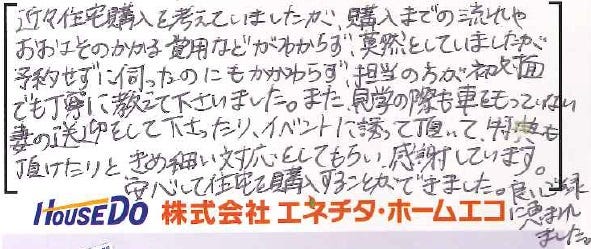 近々住宅購入を考えていましたが、購入までの流れや
おおよそのかかる費用などがわからず、漠然としていましたが
予約せずに伺ったのにもかかわらず、担当の方が初対面
でも丁寧に教えて下さいました。また、見学の際も車をもっていない
妻の送迎をして下さったり、イベントに誘って頂いて、特典も
頂けたりと、きめ細い対応をしてもらい、感謝しています。
安心して住宅を購入することができました。良いご縁
に恵まれ
ました。
HOUSEDO 株式会社 エネチタ・ホームエコ